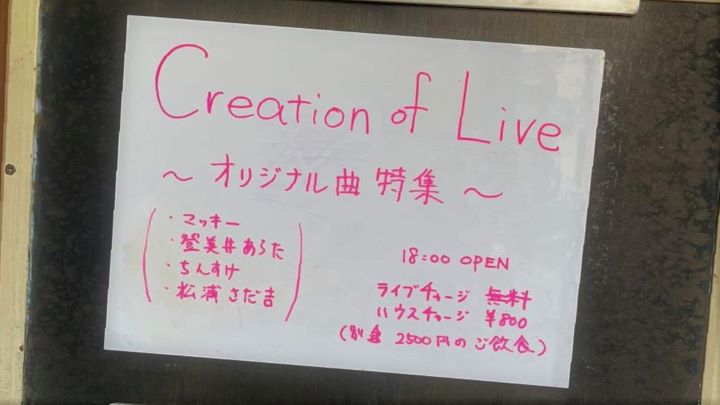 Creation of Live
～ オリジナル曲 特集 ～
・マッキー
・登美井あらた
・ちんすけ
・松浦さだ吉
18:00 OPEN
ライブチャージ 無料
ハウスチャージ ¥800
(別途 2500円のご飲食)